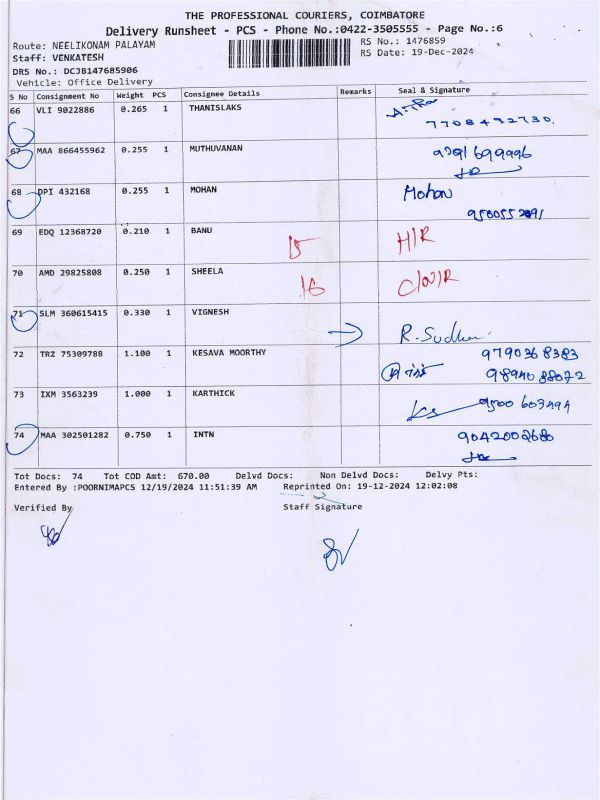 THE PROFESSIONAL COURIERS, COIMBATORE
Delivery Runsheet - PCS - Phone No.:0422-3505555 - Page No.:6
Route: NEELIKONAM PALAYAM RS No.: 1476859
Staff: VENKATESH RS Date: 19-Dec-2024
DRS No.: DCJB147685906
Vehicle: Office Delivery
S No Consignment No Weight PCS Consignee Details Remarks Seal & Signature
66 VLI 9022886 0.265 1 THANISLAKS
7708492730.
67 MAA 866455962 0.255 1 MUTHUVANAN
68 DPI 432168 0.255 1 MOHAN Mohan
69 EDQ 12368720 0.210 1 BANU 15 H/R
70 AMD 29825808 0.250 1 SHEELA 16
71 SLM 360615415 0.330 1 VIGNESH
R. Sudha
72 TRZ 75309788 1.100 1 KESAVA MOORTHY 9790368383
9894088072
73 IXM 3563239 1.000 1 KARTHICK 9500603494
74 MAA 302501282 0.750 1 INTN 9042002680
Tot Docs: 74 Tot COD Amt: 670.00 Delvd Docs: Non Delvd Docs: Delvy Pts:
Entered By :POORNIMAPCS 12/19/2024 11:51:39 AM Reprinted On: 19-12-2024 12:02:08
Verified By Staff Signature